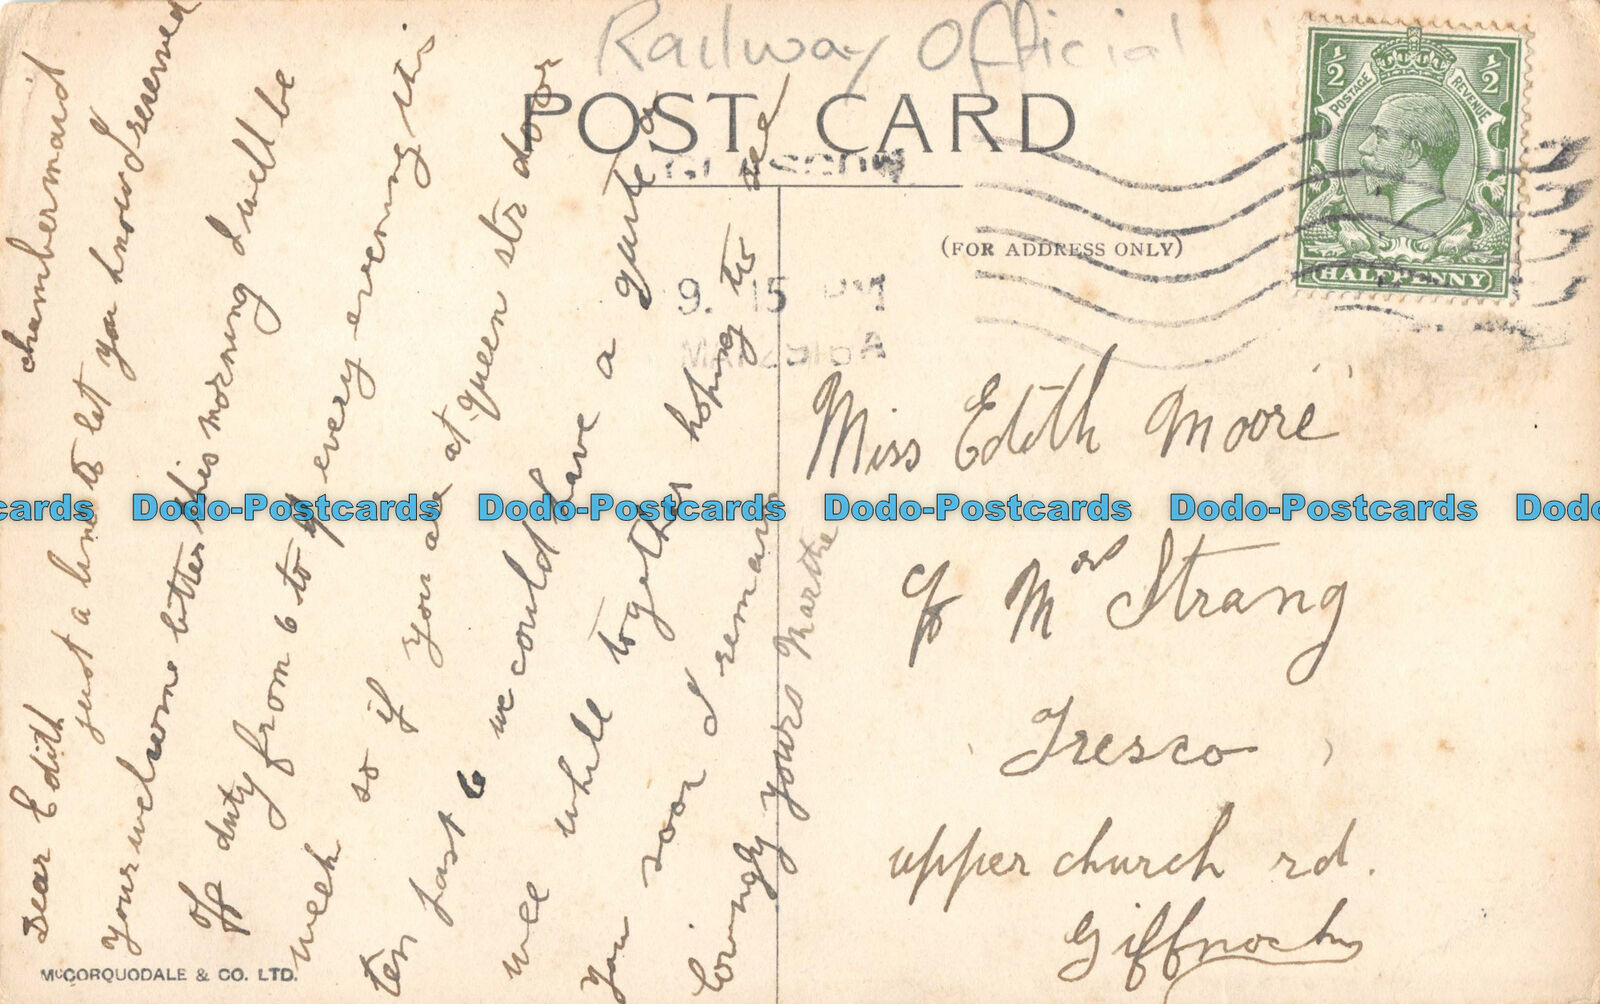 Railway Official
POST CARD
GLASGOW
9. 15 PM
(FOR ADDRESS ONLY)
½ ½
POSTAGE REVENUE
HALFPENNY
chambermaid
Dear Edith
just a line to let you know I reserved
your welcome letter this morning I well be
off duty from 6 to 9 every evening this
week so if you are at Queen str door
ten past 6 we could have a quite a
wee while together hoping to see
you soon I remain
lovingly yours Marthe
Miss Edith Moore
c/o Mrs Strang
Tresco
upper church rd.
Giffnock
McCORQUODALE & CO. LTD.
Dodo-Postcards Dodo-Postcards Dodo-Postcards Dodo-Postcards